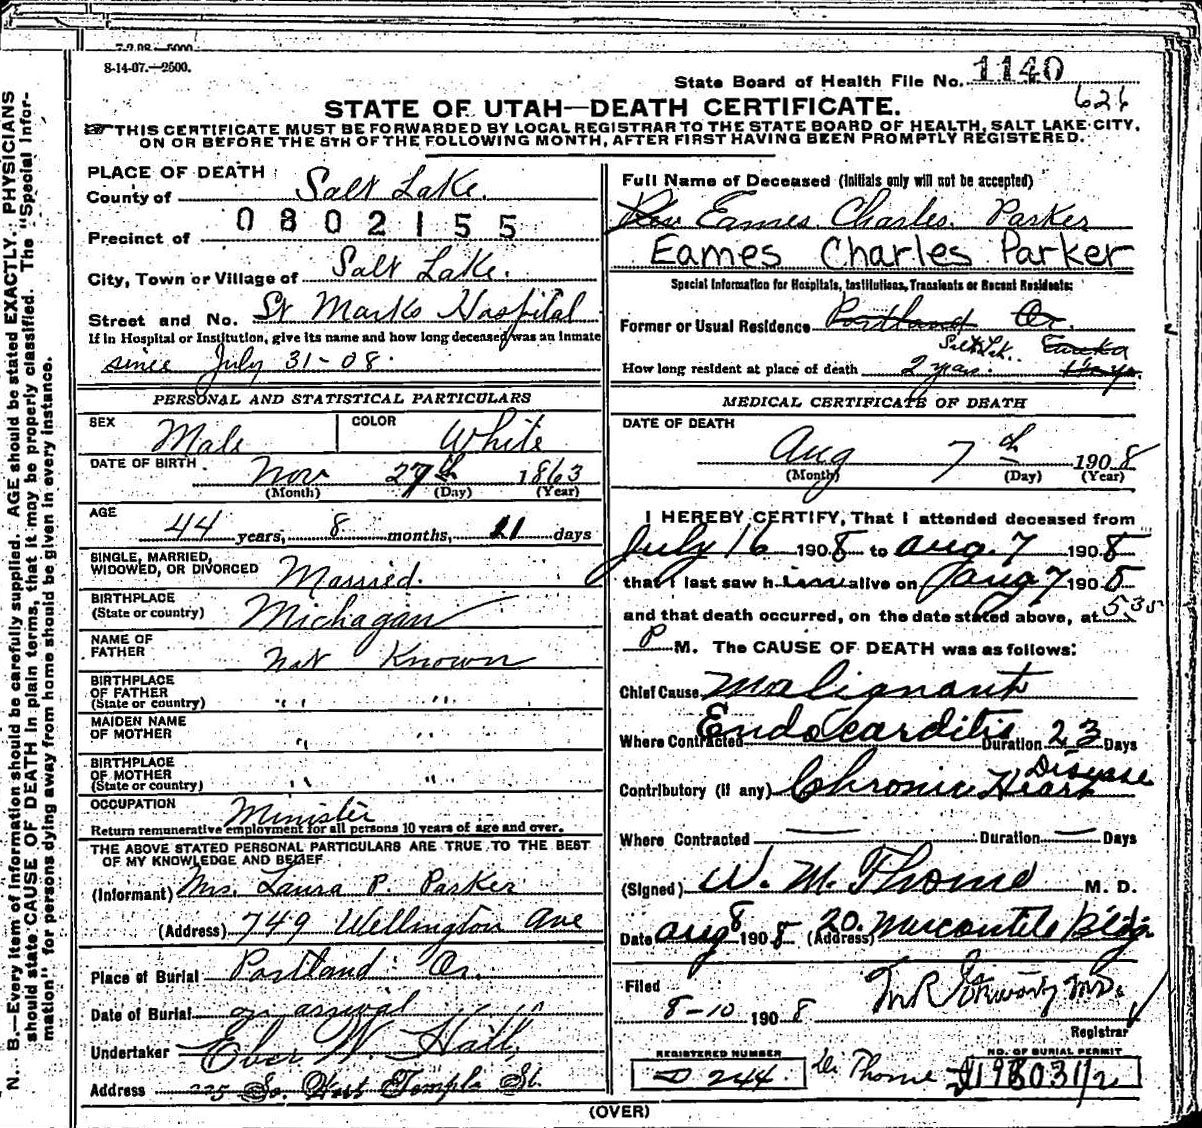 8-14-07.—2500.
State Board of Health File No. 1140
626
STATE OF UTAH—DEATH CERTIFICATE.
THIS CERTIFICATE MUST BE FORWARDED BY LOCAL REGISTRAR TO THE STATE BOARD OF HEALTH, SALT LAKE CITY,
ON OR BEFORE THE 5TH OF THE FOLLOWING MONTH, AFTER FIRST HAVING BEEN PROMPTLY REGISTERED.
N. B.—Every item of information should be carefully supplied. AGE should be stated EXACTLY. PHYSICIANS
should state CAUSE OF DEATH in plain terms, that it may be properly classified. The "Special Infor-
mation" for persons dying away from home should be given in every instance.
PLACE OF DEATH
County of Salt Lake.
0802155
Precinct of
City, Town or Village of Salt Lake.
Street and No. St Marks Hospital
If in Hospital or Institution, give its name and how long deceased was an inmate
since July 31-08.
PERSONAL AND STATISTICAL PARTICULARS
SEX Male COLOR White
DATE OF BIRTH Nov 27th 1863
(Month) (Day) (Year)
AGE
44 years, 8 months, 11 days
SINGLE, MARRIED,
WIDOWED, OR DIVORCED Married.
BIRTHPLACE
(State or country) Michagan
NAME OF
FATHER Not Known
BIRTHPLACE
OF FATHER
(State or country) " "
MAIDEN NAME
OF MOTHER " "
BIRTHPLACE
OF MOTHER
(State or country) " "
OCCUPATION Minister
Return remunerative employment for all persons 10 years of age and over.
THE ABOVE STATED PERSONAL PARTICULARS ARE TRUE TO THE BEST
OF MY KNOWLEDGE AND BELIEF
(Informant) Mrs. Laura P. Parker
(Address) 749 Wellington Ave
Place of Burial Portland Or.
Date of Burial on arrival
Undertaker Eber W. Hall,
Address 225 So. West Temple St.
Full Name of Deceased (Initials only will not be accepted)
Rev Eames Charles Parker
Eames Charles Parker
Special Information for Hospitals, Institutions, Transients or Recent Residents:
Former or Usual Residence Portland Or.
Salt Lak. Eureka
How long resident at place of death 2 years.
MEDICAL CERTIFICATE OF DEATH
DATE OF DEATH
Aug 7th 1908
(Month) (Day) (Year)
I HEREBY CERTIFY, That I attended deceased from
July 16 1908 to Aug. 7 1908
that I last saw him alive on Aug 7 1908
and that death occurred, on the date stated above, at 5 35
P M. The CAUSE OF DEATH was as follows:
Chief Cause Malignant
Endocarditis
Where Contracted Duration 23 Days
Contributory (if any) Chronic Heart Disease
Where Contracted — Duration — Days
(Signed) W. M. Thome M. D.
Date Aug 8 1908 (Address) 20. Mercantile Bldg
Filed
8-10 1908
Registrar
REGISTERED NUMBER
D 244.
Dr Thome
NO. OF BURIAL PERMIT
(OVER)